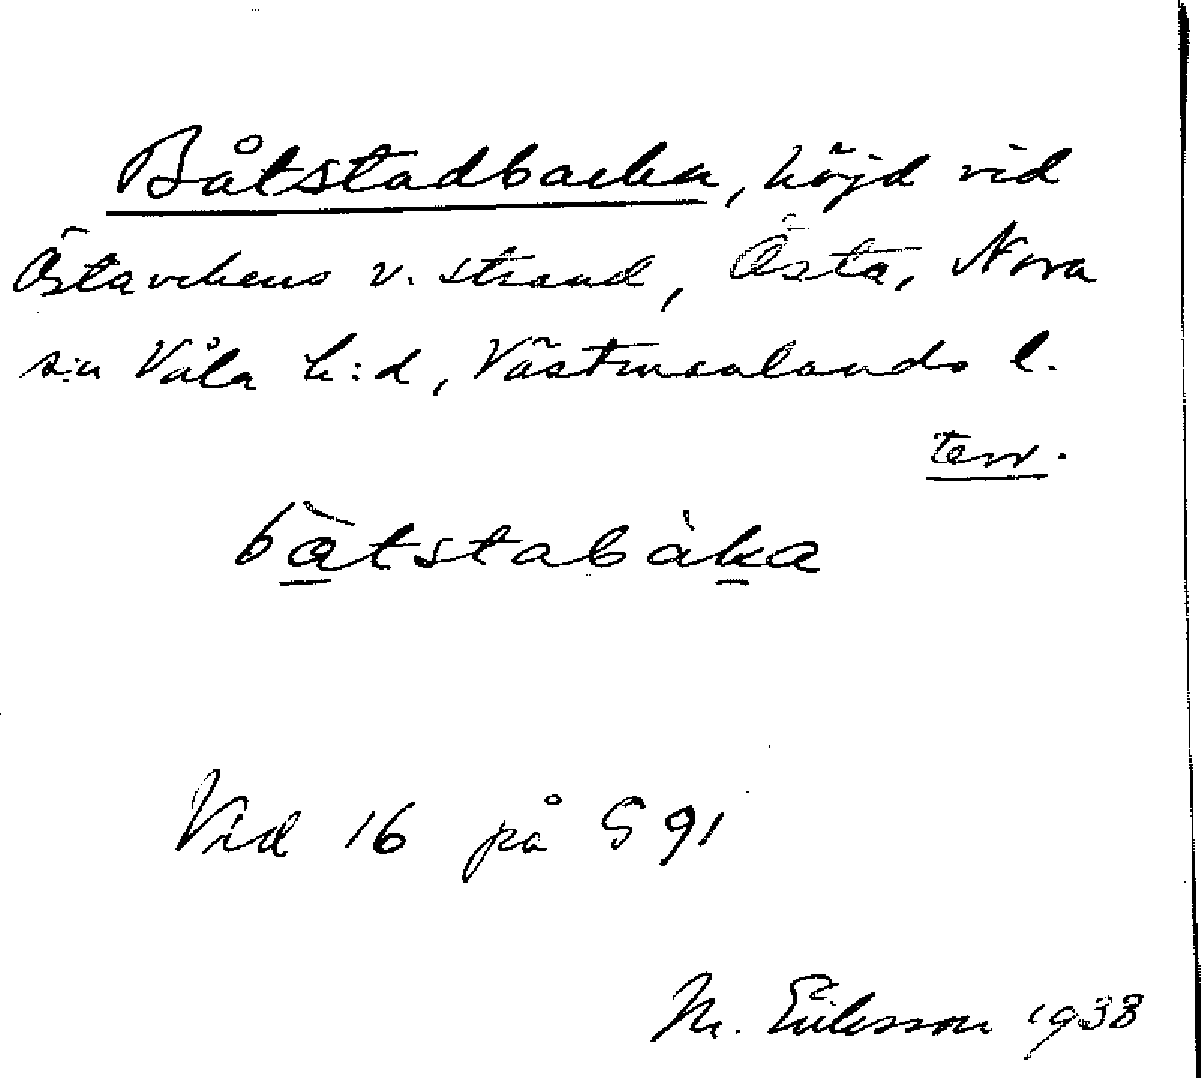 Båtstadbacka, höjd vid
Östavikens v. strand, Östa, Nora
s:n Våla h:d, Västmanlands l.
terr.
bàtstabàka
Vid 16 på G 91
M. Eriksson 1938